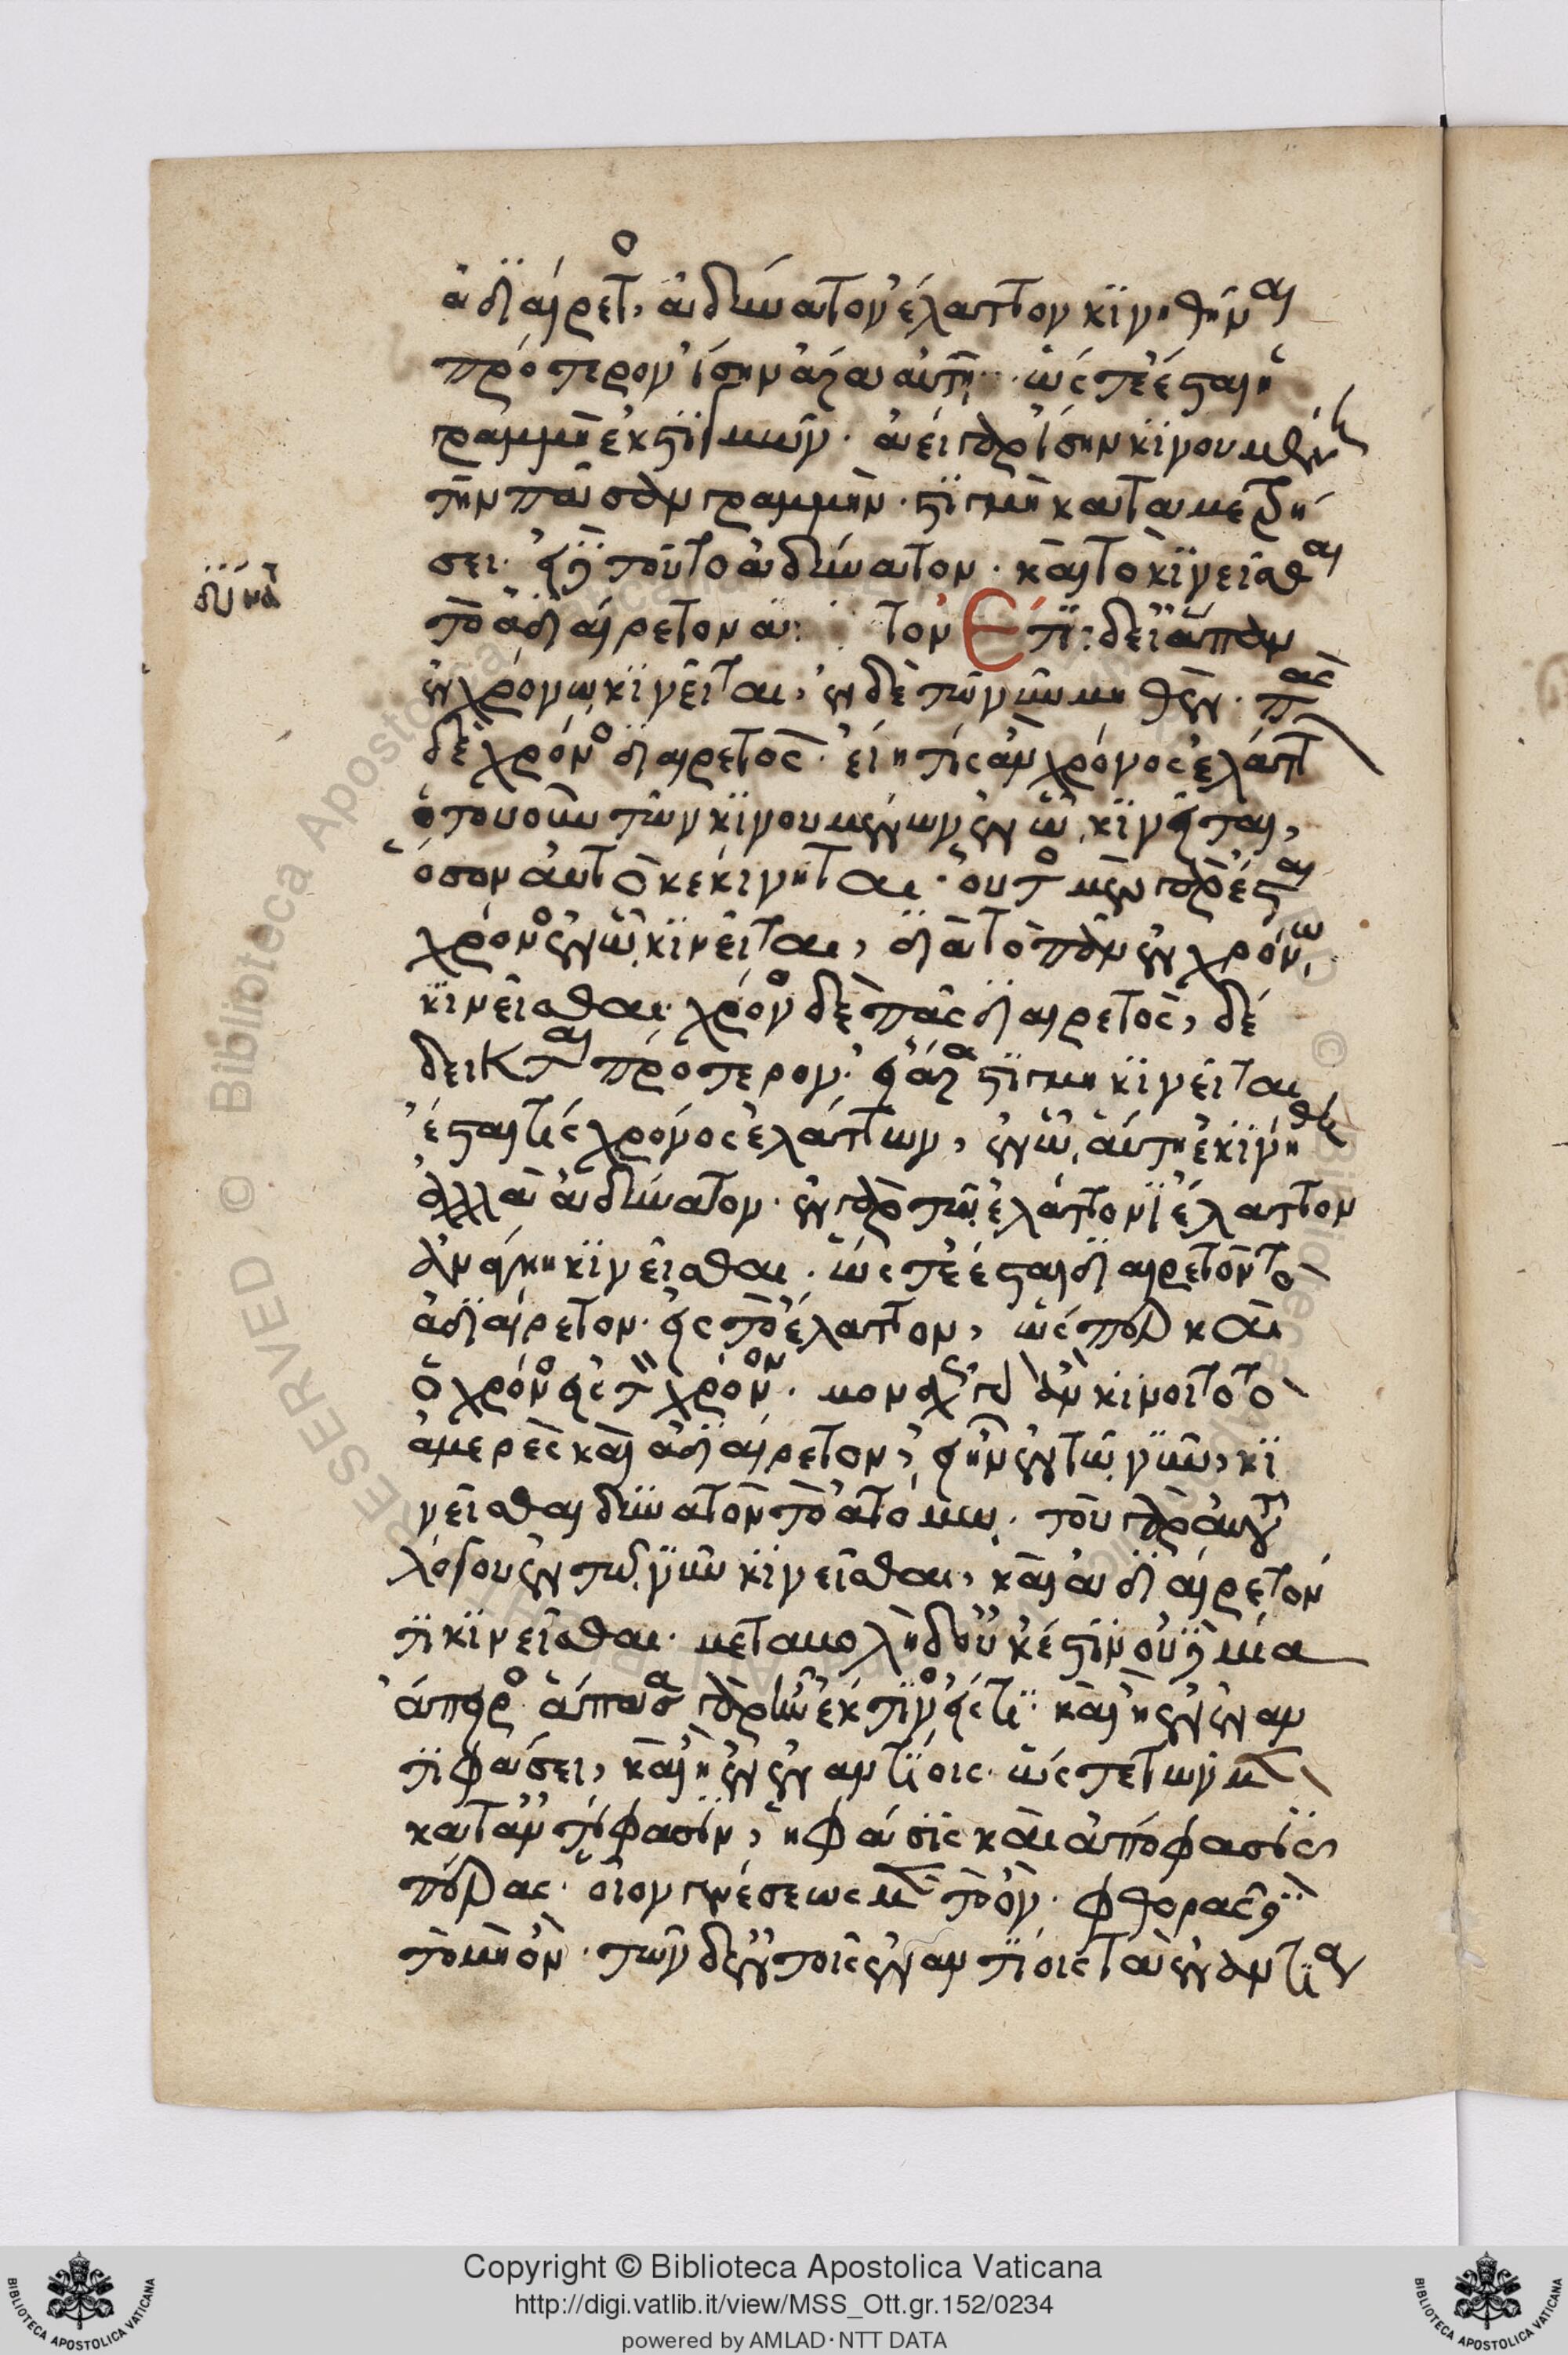 ἀδιαίρετον, ἀδύνατον ἔλαττον κινηθῆναι
πρότερον ἴσην ἀλλὰ αὐτῇ· ὥστε ἔσται ἡ
γραμμὴ ἐκ στιγμῶν· ἀεὶ γὰρ ἴσην κινουμένη
τὴν πᾶσαν γραμμὴν στιγμὴ καταμετρή
σει· εἰ δὲ τοῦτο ἀδύνατον· καὶ τὸ κινεῖσθαι
δύνατ
τὸ ἀδιαίρετον ἀ: τον Ἔτι δ' εἰ ἅπαν
ἐν χρόνῳ κινεῖται, ἐν δὲ τῷ νῦν μηθέν· πᾶς
δὲ χρόνος διαιρετός· εἴη τις ἂν χρόνος ἐλάττ
ὁτουοῦν τῶν κινουμένων ἐν ᾧ κινεῖται,
ὅσον αὐτὸ κεκίνηται· οὗτος μὲν γὰρ ἔσται
χρόνος ἐν ᾧ κινεῖται, διὰ τὸ πᾶν ἐν χρόνῳ
κινεῖσθαι· χρόνος δὲ πᾶς διαιρετός, δέ
δεικται πρότερον· εἰ ἄρα στιγμὴ κινεῖται
ἔσται τίς χρόνος ἐλάττων, ἐν ᾧ αὕτη ἐκινήθη
ἀλλὰ ἀδύνατον· ἐν γὰρ τῷ ἐλάττονι ἔλαττον
ἀνάγκη κινεῖσθαι· ὥστε ἔσται διαιρετὸν τὸ
ἀδιαίρετον εἰς τὸ ἔλαττον, ὥσπερ καὶ
ὁ χρόνος εἰς τὸν χρόνον· μοναχῶς γὰρ ἂν κινοῖτο τὸ
ἀμερὲς καὶ ἀδιαίρετον, εἰ ἦν ἐν τῷ νῦν κι
νεῖσθαι δυνατὸν τὸ ἀτόμῳ· τοῦ γὰρ αὐτοῦ
λόγου ἐν τῷ νῦν κινεῖσθαι, καὶ ἀδιαίρετόν
τι κινεῖσθαι· μεταβολὴ δ' οὐκ ἔστιν οὐδεμία
ἄπειρος ἅπασα γὰρ ἦν ἔκ τινος εἴς τι· καὶ ἡ ἐν ἀν
τιφάσει, καὶ ἡ ἐν ἐναντίοις· ὥστε τῶν μὲν
κατ' ἀντίφασιν, ἡ φάσις καὶ ἀπόφασις
πέρας· οἷον γενέσεως μὲν τὸ ὄν· φθορᾶς δὲ
τὸ μὴ ὄν· τῶν δ' ἐν τοῖς ἐναντίοις τὰ ἐναντία
Copyright © Biblioteca Apostolica Vaticana
http://digi.vatlib.it/view/MSS_Ott.gr.152/0234
powered by AMLAD·NTT DATA